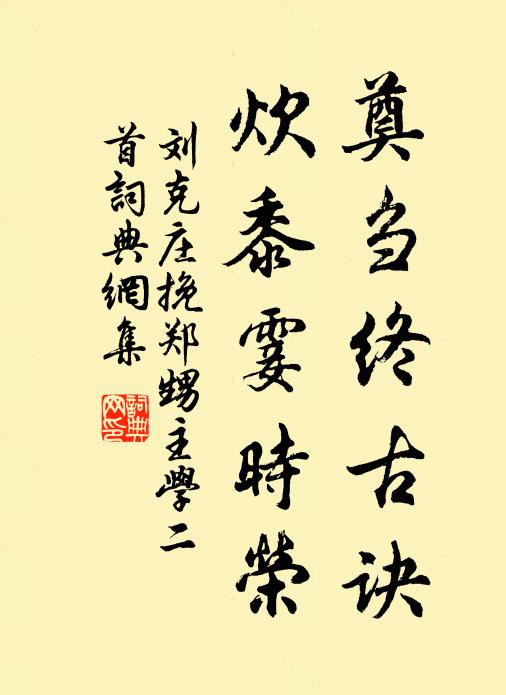 奠刍终古诀
炊黍霎時榮
刘克庄挽郑甥主學二
首詞典網集
詞典网印